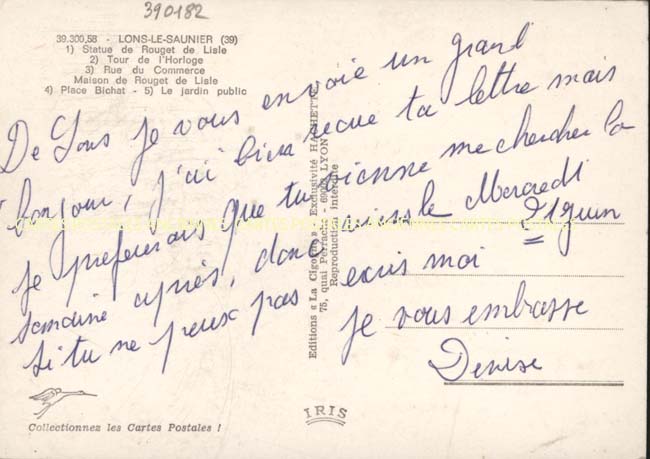 390182
39.300.58 - LONS-LE-SAUNIER (39)
1) Statue de Rouget de Lisle
2) Tour de l'Horloge
3) Rue du Commerce
Maison de Rouget de Lisle
4) Place Bichat - 5) Le jardin public
De Lons je vous envoie un grand
bonjour, j'ai bien recue ta lettre mais
je prefererais que tu vienne me chercher la
semaine après, donc viens le Mercredi
21 juin
si tu ne peux pas ecris moi
je vous embrasse
Denise
Editions « La Cigogne » - Exclusivité HACHETTE
75, quai Perrache - 69002 LYON
Reproduction interdite
IRIS
Collectionnez les Cartes Postales !